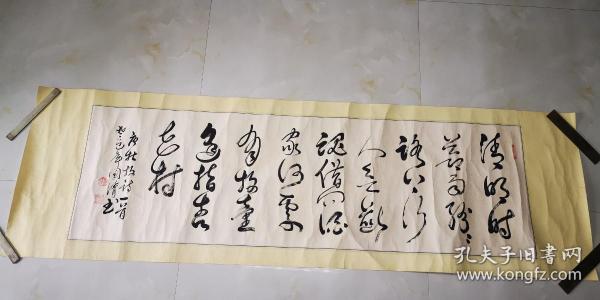 清明时
节雨纷纷
路上行
人欲断
魂借问酒
家何处
有牧童
遥指杏
花村
唐杜牧诗一首
癸巳年国书
孔夫子旧书网
www.kongfz.com